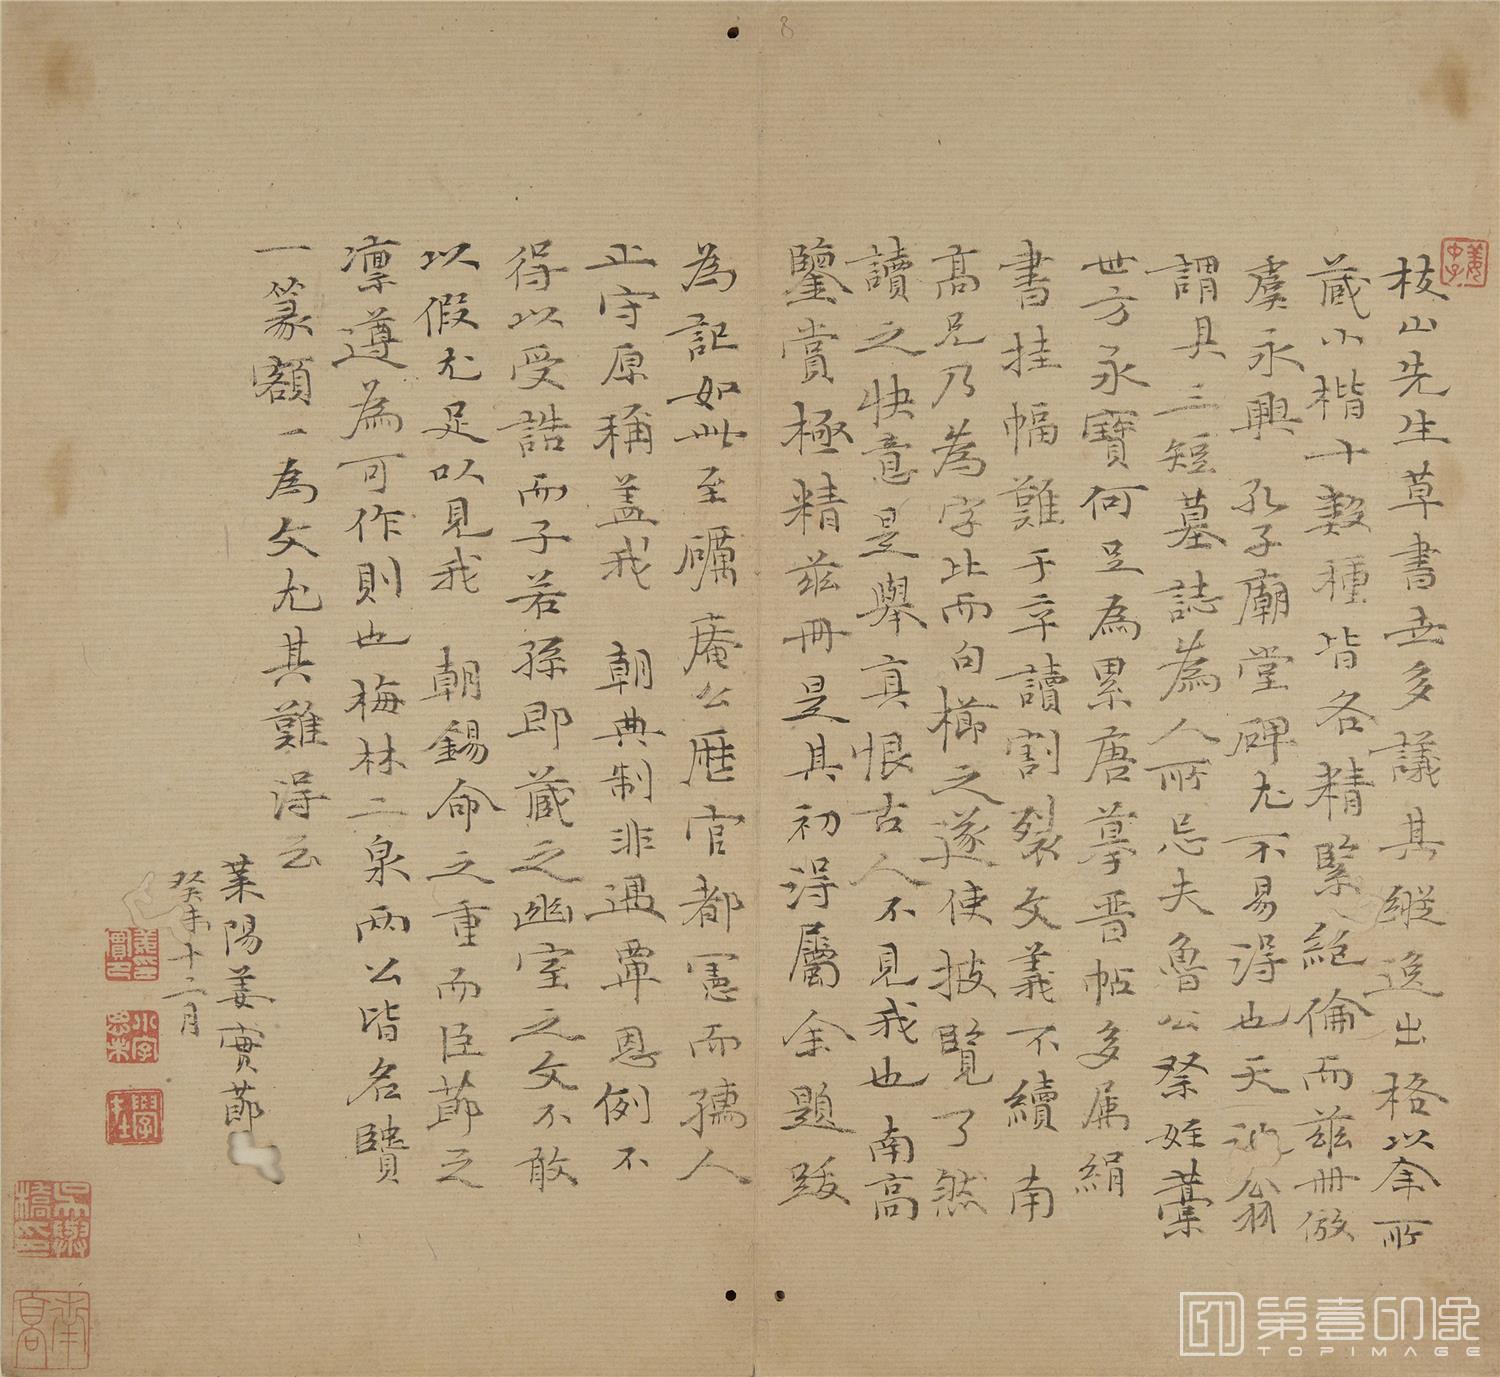 枝山先生草書世多議其縱逸出格以余所
藏小楷十數種皆各精緊絕倫而茲冊倣
虞永興孔子廟堂碑尤不易得也天池翁
謂其三短墓誌為人所忌夫魯公祭姪藁
世方永寶何足為累唐摹晉帖多属絹
書挂幅難于卒讀割裂文義不續南
高兄乃為字比而句櫛之遂使披覽了然
讀之快意是舉真恨古人不見我也南高
鑒賞極精茲冊是其初得屬余題跋
為記如此至礪庵公歷官都憲而孺人
止守原稱盖我 朝典制非遇覃恩例不
得以受誥而子若孫即蔵之幽室之文不敢
以假尤足以見我 朝錫命之重而臣莭之
凛遵為可作則也梅林二泉两公皆名賢
一篆額一為文尤其難淂云
萊陽姜實莭
癸未十二月
8
南高
第壹印像
TOPIMAGE